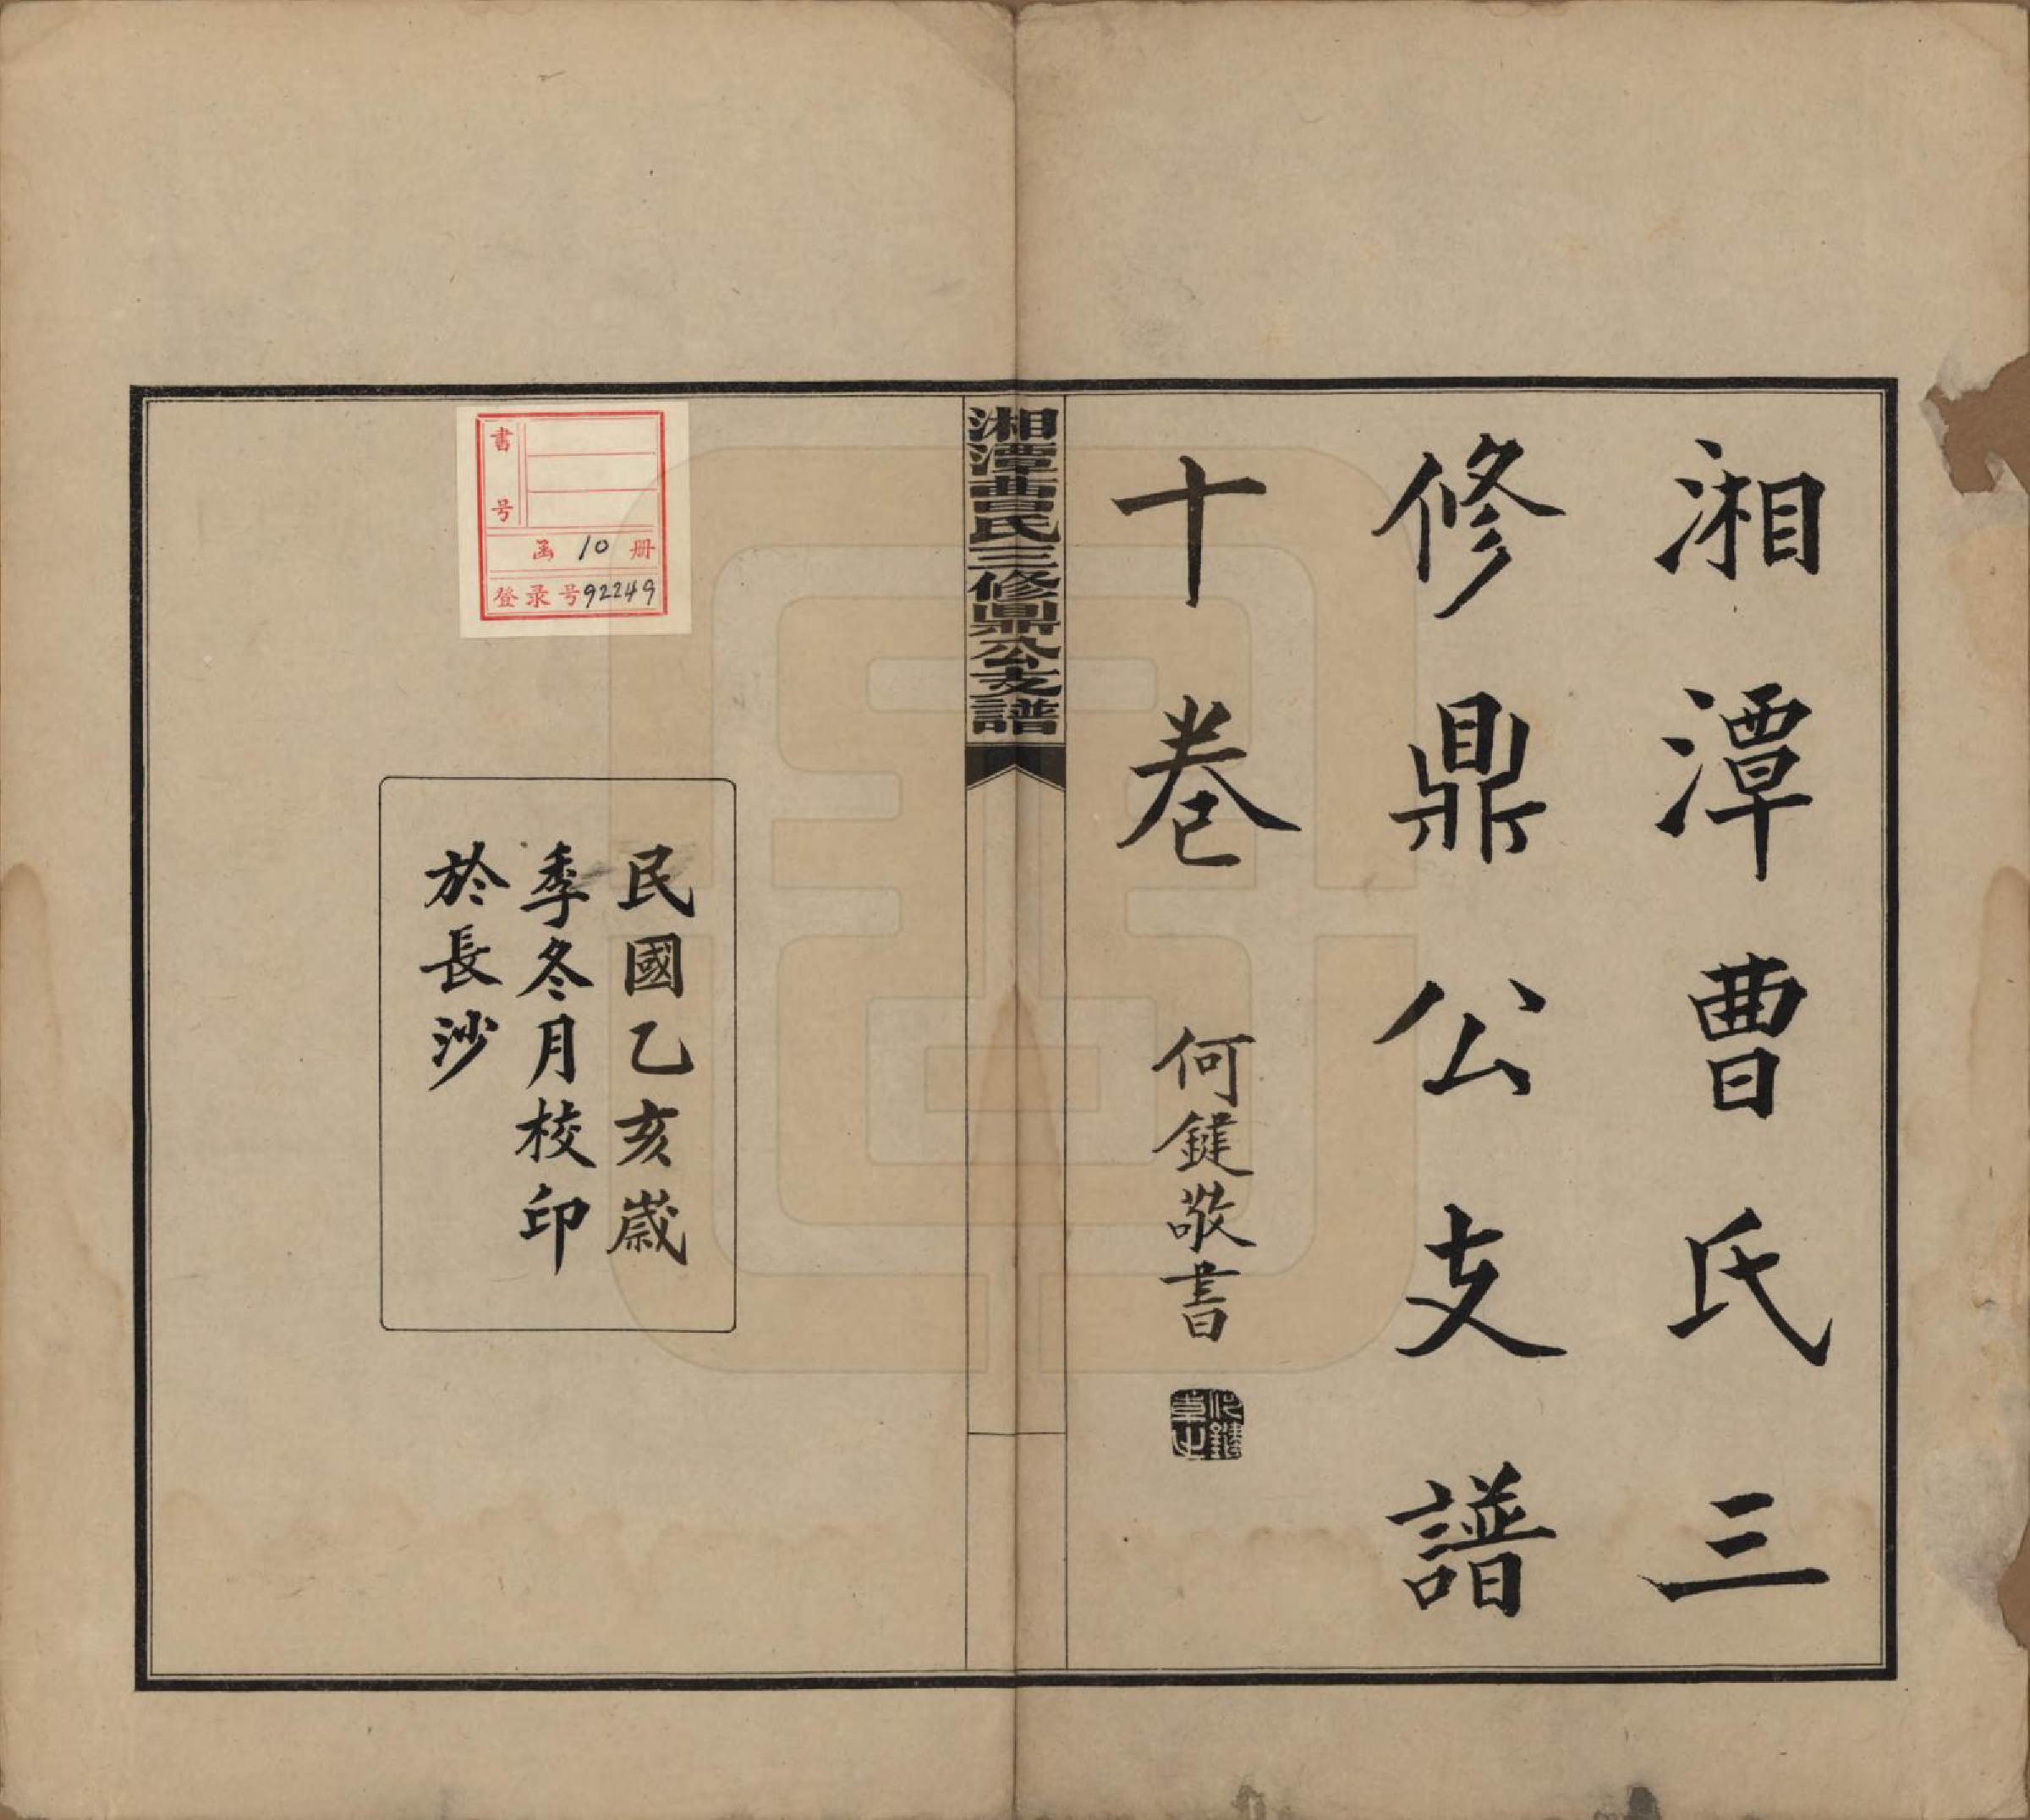 湘潭曹氏三
修鼎公支譜
十卷
何鍵敬書
湘潭曹氏三修鼎公支譜
民國乙亥歲
季冬月校印
於長沙
书号
函 10 册
登录号92249